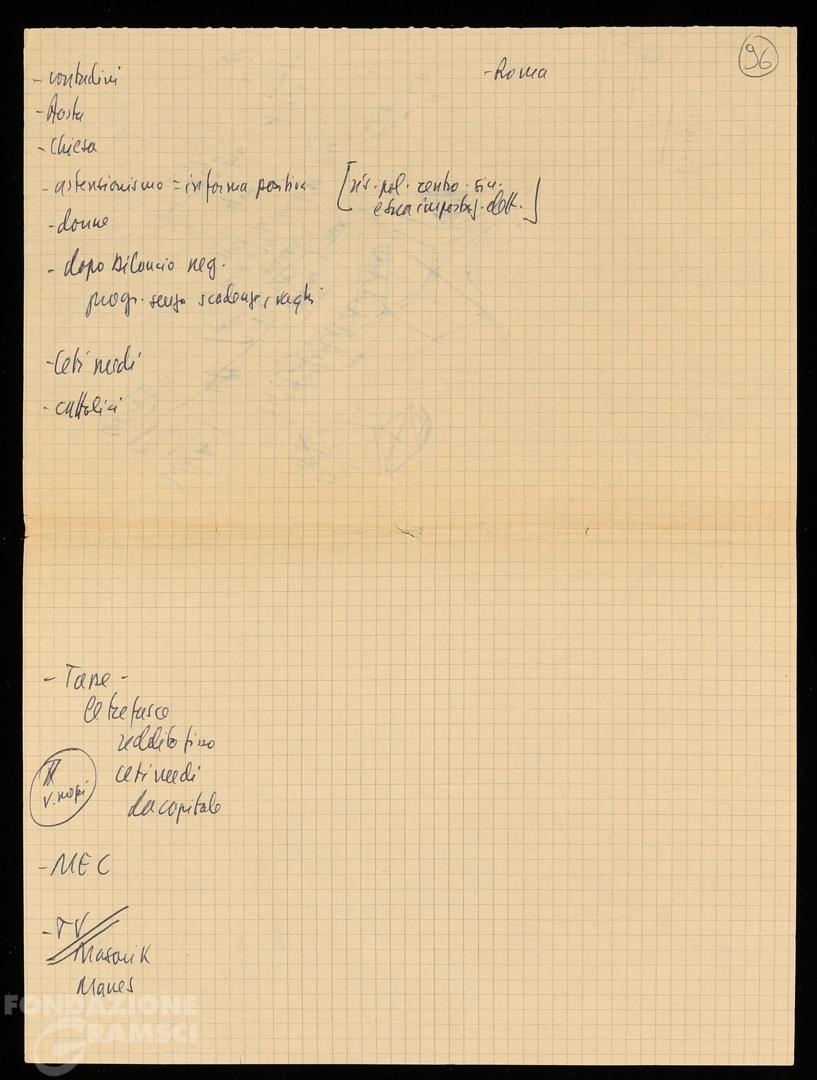 96
- contadini
- Roma
- Aosta
- Chiesa
- astensionismo = in forma positiva
[ris. pol. centro-sin.
e sua impostaz. dott.]
- donne
- dopo bilancio neg.
progr. senza scadenze, vaghi
- Ceti medi
- cattolici
- Tasse -
Le tre fasce
reddito fisso
ceti medi
da capitale
II
- MEC
- TV
Masarik
Manes
FONDAZIONE
GRAMSCI